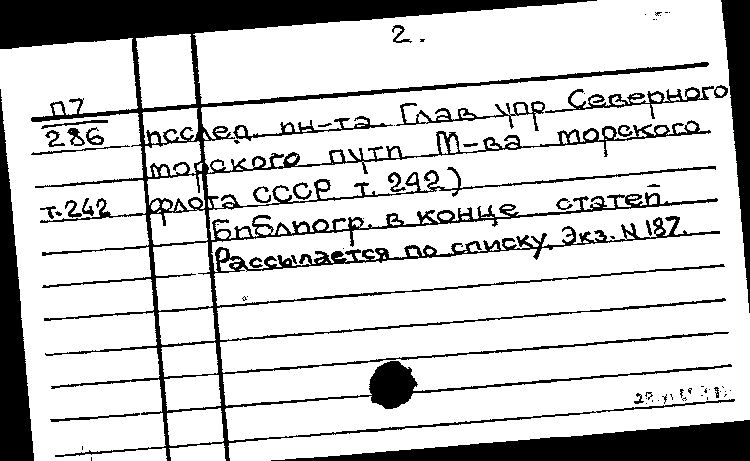 2.
П7
286 исслед. ин-та Глав упр Северного
морского пути М-ва морского
т.242 флота СССР т. 242)
Библиогр. в конце статей.
Рассылается по списку. Экз. N 187.